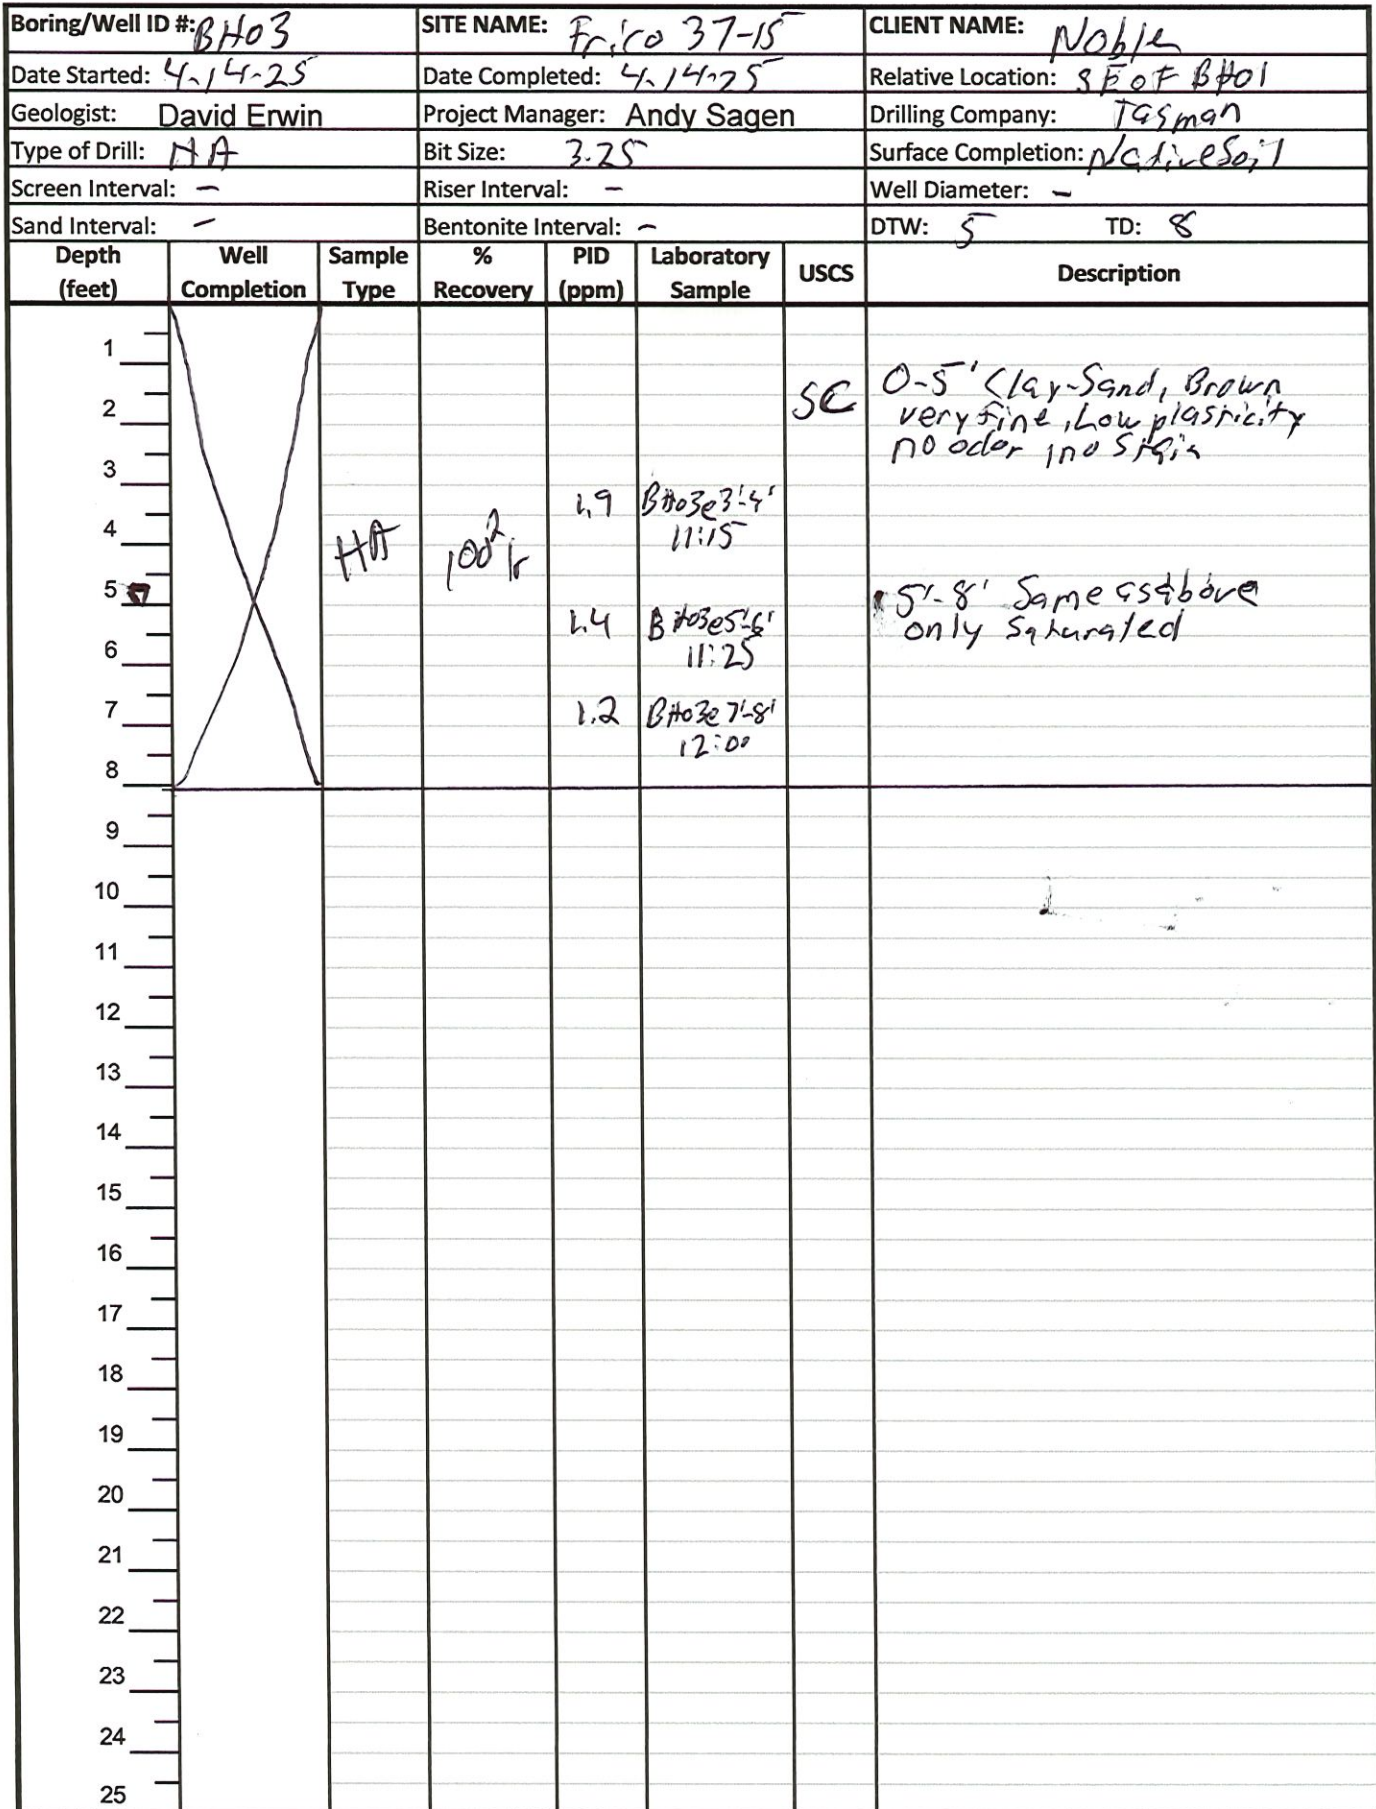 Boring/Well ID #: BH03 SITE NAME: Frico 37-15 CLIENT NAME: Noble
Date Started: 4-14-25 Date Completed: 4-14-25 Relative Location: SE OF BH01
Geologist: David Erwin Project Manager: Andy Sagen Drilling Company: Tasman
Type of Drill: HA Bit Size: 3.25 Surface Completion: Native Soil
Screen Interval: – Riser Interval: – Well Diameter: –
Sand Interval: – Bentonite Interval: – DTW: 5 TD: 8
Depth Well Sample % PID Laboratory USCS Description
(feet) Completion Type Recovery (ppm) Sample
1
SC 0-5' Clay-Sand, Brown
2 very fine, Low plasticity
no odor, no Stain
3
1.9 BH03e3'-4'
4 HA 100% 11:15
5 5'-8' Same as above
1.4 BH03e5'-6' only Saturated
6 11:25
7 1.2 BH03e7'-8'
12:00
8
9
10
11
12
13
14
15
16
17
18
19
20
21
22
23
24
25